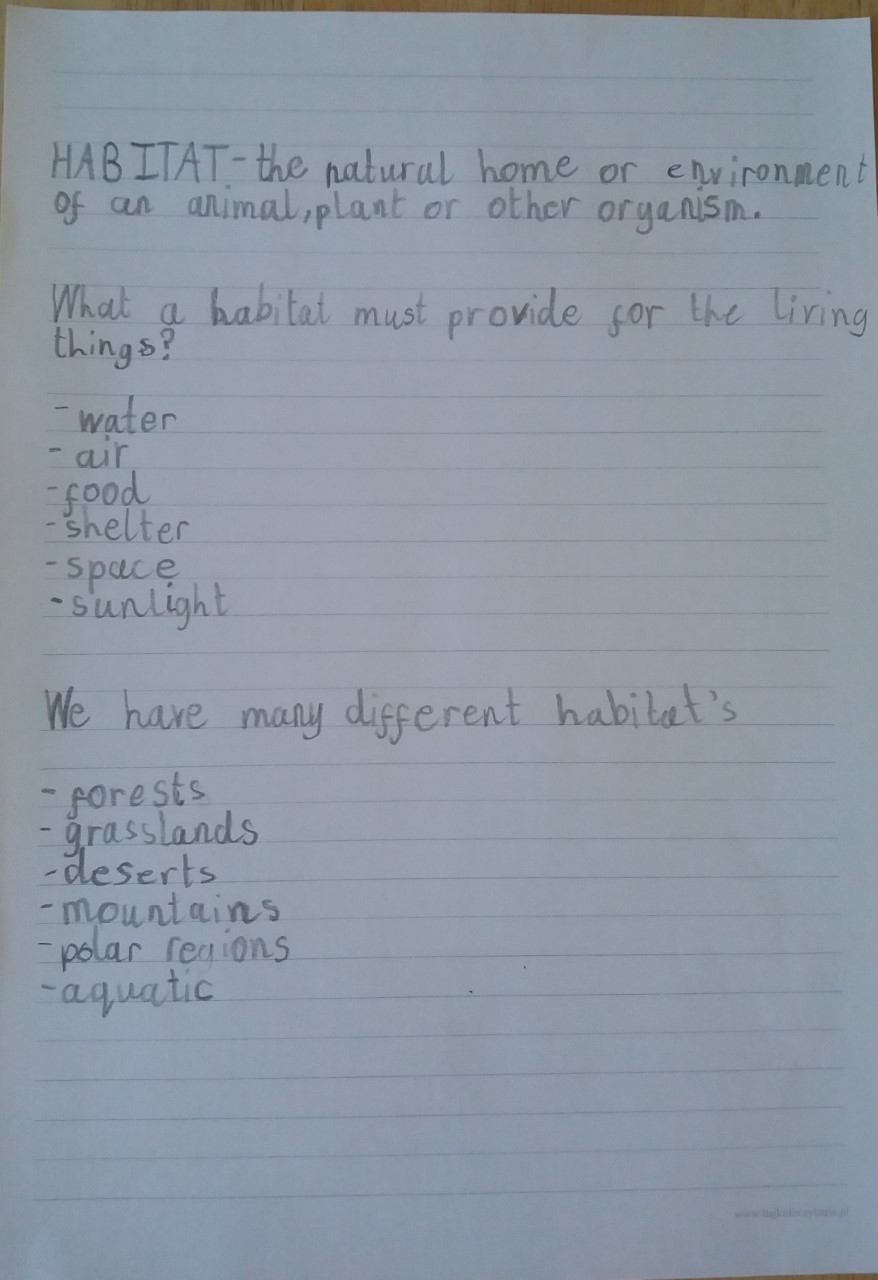 HABITAT - the natural home or environment
of an animal, plant or other organism.
What a habitat must provide for the living
things?
- water
- air
- food
- shelter
- space
- sunlight
We have many different habitat's
- forests
- grasslands
- deserts
- mountains
- polar regions
- aquatic